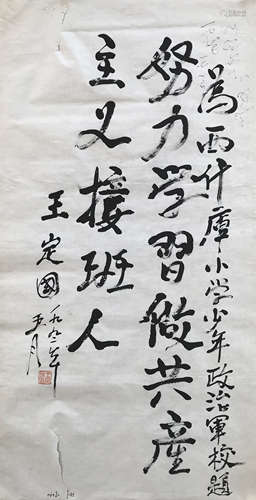 為西什庫小学少年政治軍校題
努力学習做共產
主义接班人
王定國
一九八二年
五月